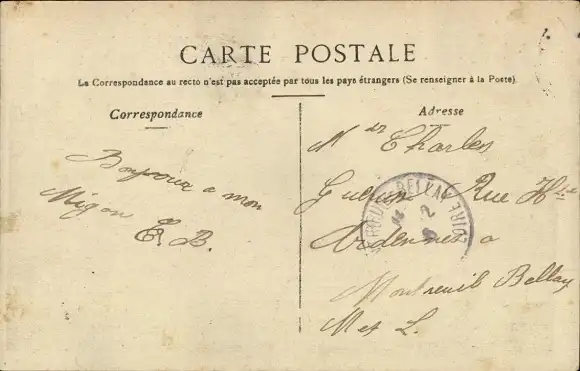 CARTE POSTALE
La Correspondance au recto n'est pas acceptée par tous les pays étrangers (Se renseigner à la Poste).
Correspondance
Adresse
Bonjour a mon
Mignon
E. B.
Mr Charles
Rue Hte
Ardennes a
Montreuil Bellay
M et L.